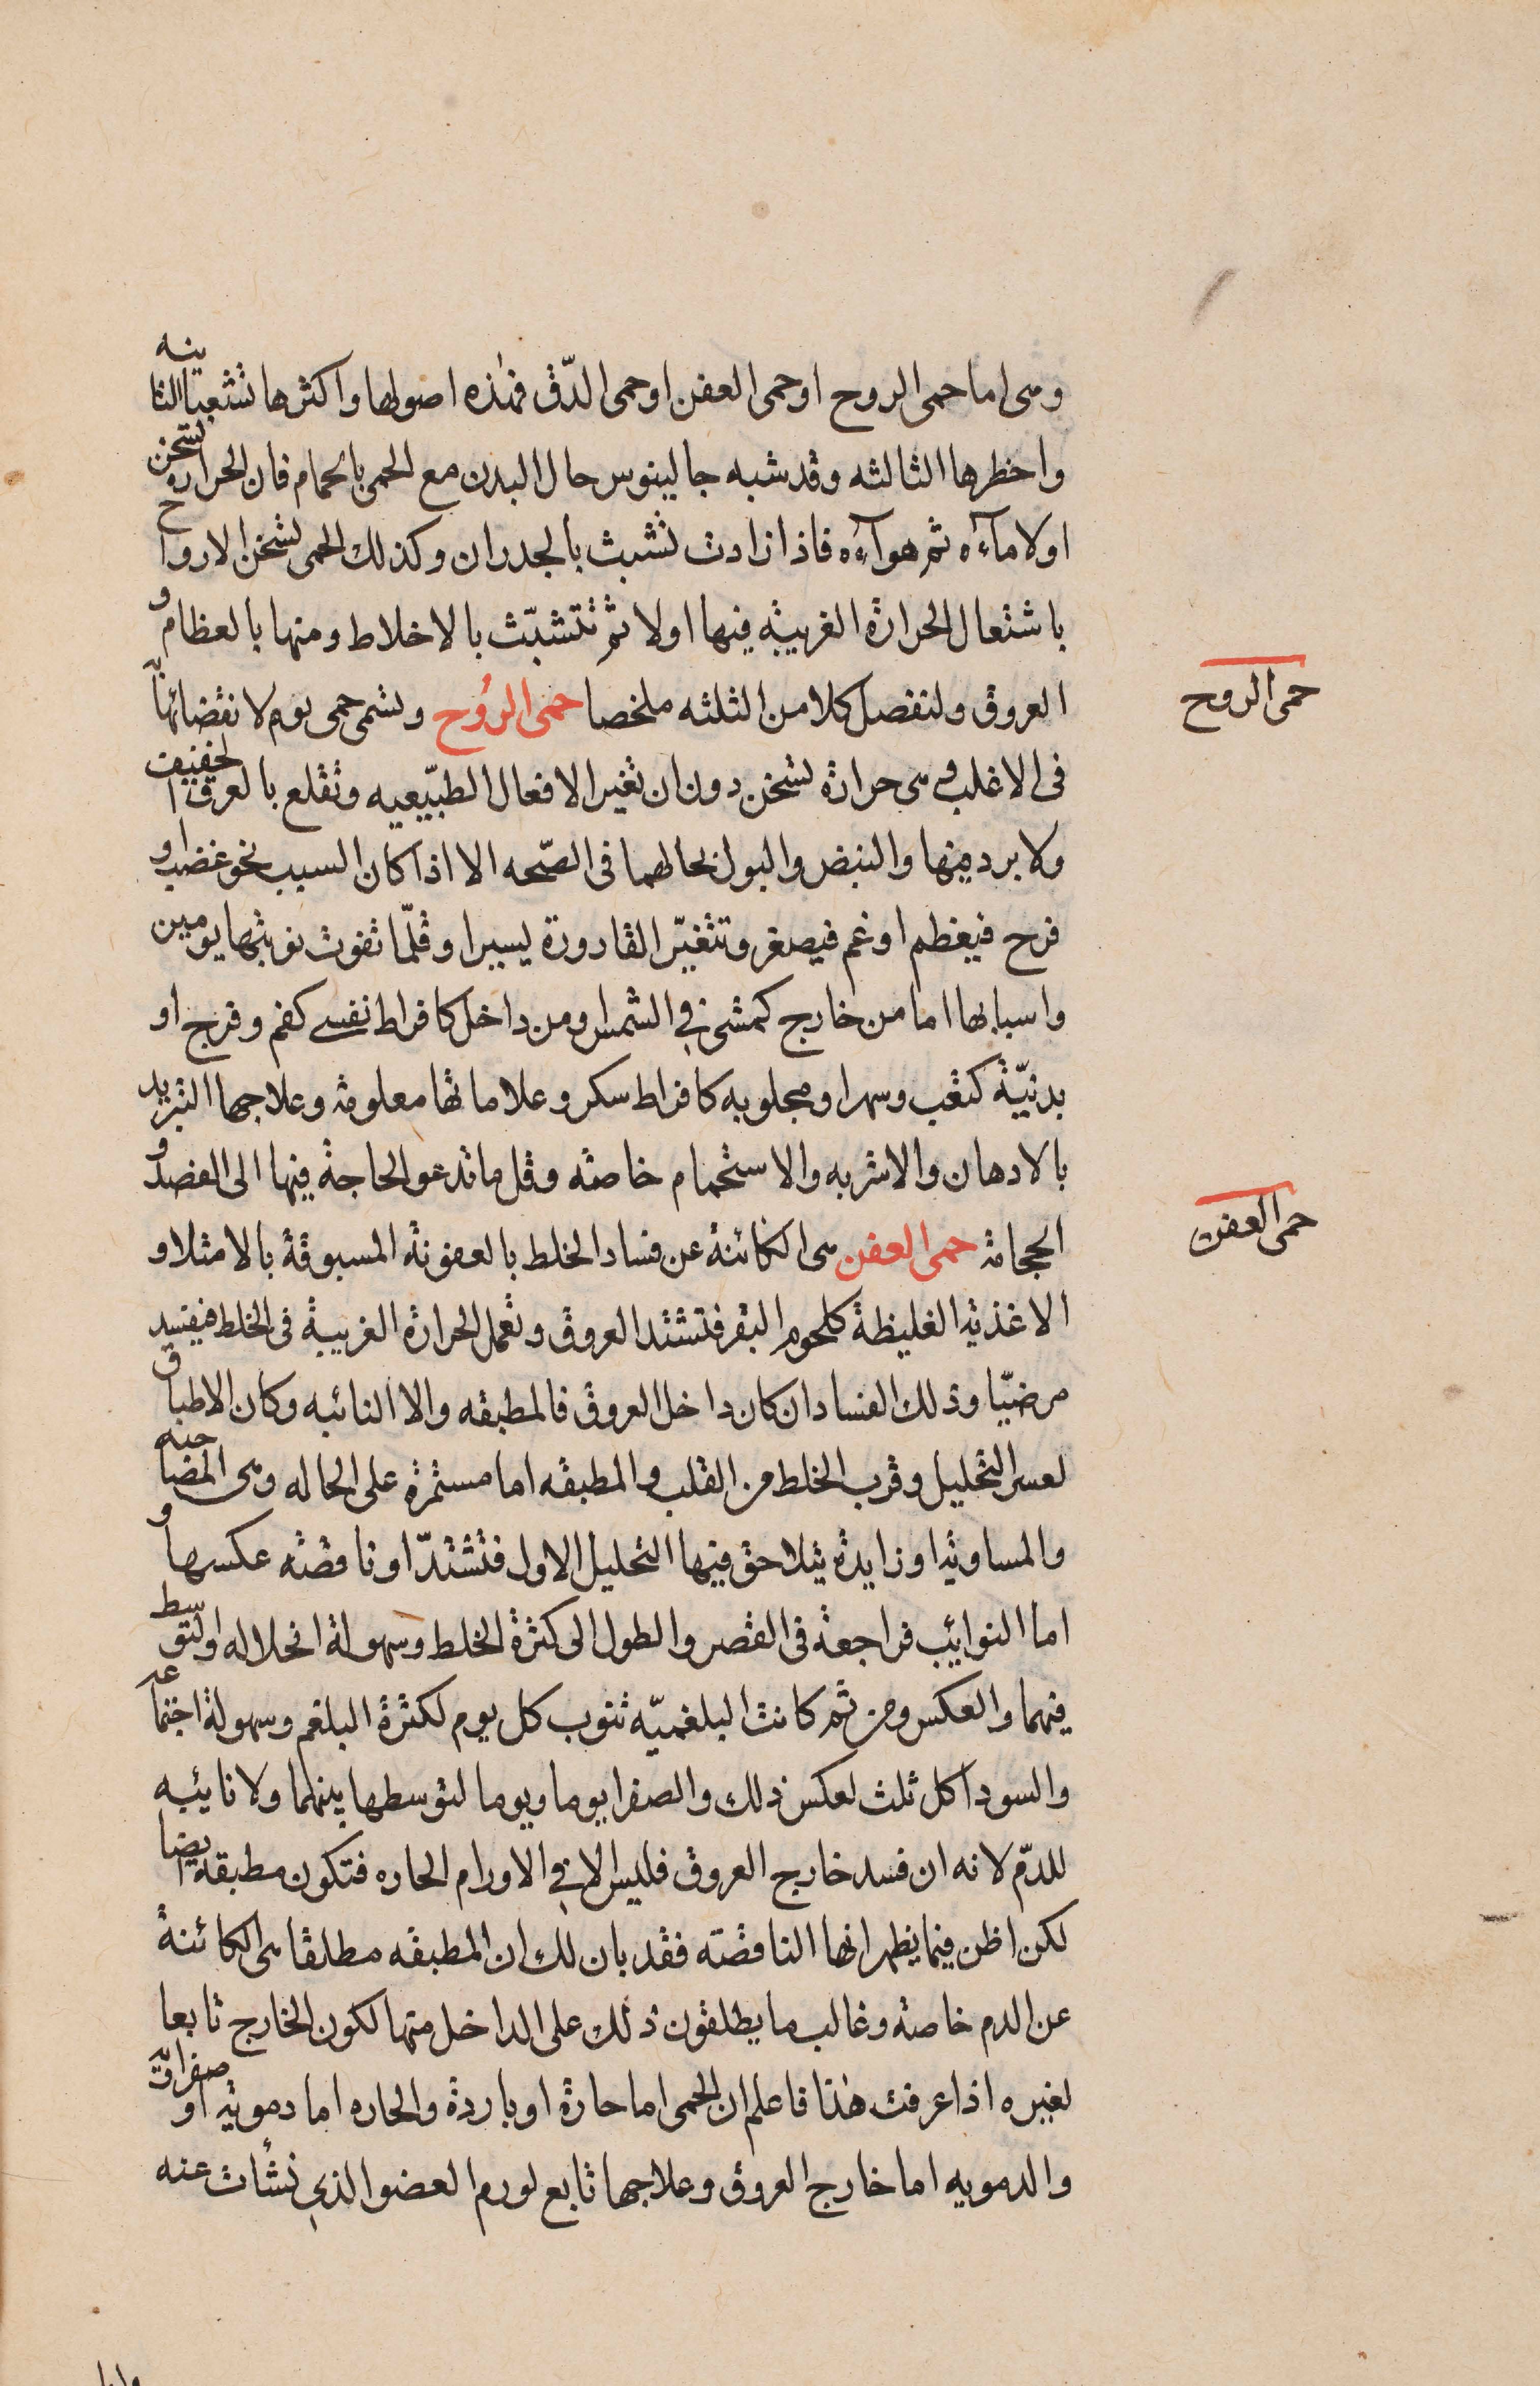 وهى اما حمى الروح او حمى العفن او حمى الدّق فهذه اصولها واكثرها تشعبا الثانيه
واخطرها الثالثه وقد شبه جالينوس حال البدن مع الحمى بالحمام فان الحراره تسخن
اولا مآءه ثم هوآءه فاذا زادت تشبث بالجدران وكذلك الحمى تسخن الارواح
باشتعال الحرارة الغريبة فيها اولا ثم تتشبّث بالاخلاط ومنها بالعظام و
العروق ولنفصل كلا من الثلثه ملخصا حمى الرُوح وتسمى حمى يوم لانقضائها
حمى الروح
فى الاغلب وهى حرارة تسخن دون ان تغير الافعال الطبّيعيه وتقلع بالعرق الخفيف
ولا برد فيها والنبض والبول بحالهما فى الصّحه الا اذا كان السبب نحو غضب او
فرح فيعظم او غم فيصغر وتتغيّر القارورة يسيرا وقلّما تفوت نوبتها يومين
واسبابها اما من خارج كمشى في الشمس او من داخل كافراط نفسى كغم وفرح او
بدنيّة كتعب وسهر او مجلوبه كافراط سكر وعلاماتها معلومة وعلاجها التبريد
بالادهان والاشربه والاستحمام خاصة وقل ما تدعو الحاجة فيها الى الفصد و
الحجامة حمى العفن هى الكائنة عن فساد الخلط بالعفونة المسبوقة بالامتلا و
حمى العفن
الاغذية الغليظة كلحوم البقر فتشتد العروق وتعمل الحرارة الغريبة فى الخلط فيفسد
مرضيّا وذلك الفساد ان كان داخل العروق فالمطبقه والا النائبه وكان الاطباق
لعسر التحليل وقرب الخلط من القلب والمطبقه اما مستمرة على الحاله وهى المصاحبه
والمساوية او زايدة يتلاحق فيها التحليل الاول فتشتدّ او ناقصة عكسها و
اما النوايب فراجعة فى القصر والطول الى كثرة الخلط وسهولة انحلاله او لتوسط
فيهما والعكس ومن ثم كانت البلغميّه تنوب كل يوم لكثرة البلغم وسهولة اجتماعه
والسودا كل ثلث لعكس ذلك والصفرا يوما ويوما لتوسطها بينهما ولا نايبه
للدّم لانه ان فسد خارج العروق فليس الا في الاورام الحاره فتكون مطبقة ايضا
لكن اظن فيما يظهر انها الناقصه فقد بان لك ان المطبقه مطلقا هى الكائنة
عن الدم خاصة وغالب ما يطلقون ذلك على الداخل منها لكون الخارج تابعا
لغيره اذا عرفت هذا فاعلم ان الحمى اما حارة او باردة والحاره اما دموية او صفراويّة
والدمويه اما خارج العروق وعلاجها تابع لورم العضو الذي نشأت عنه